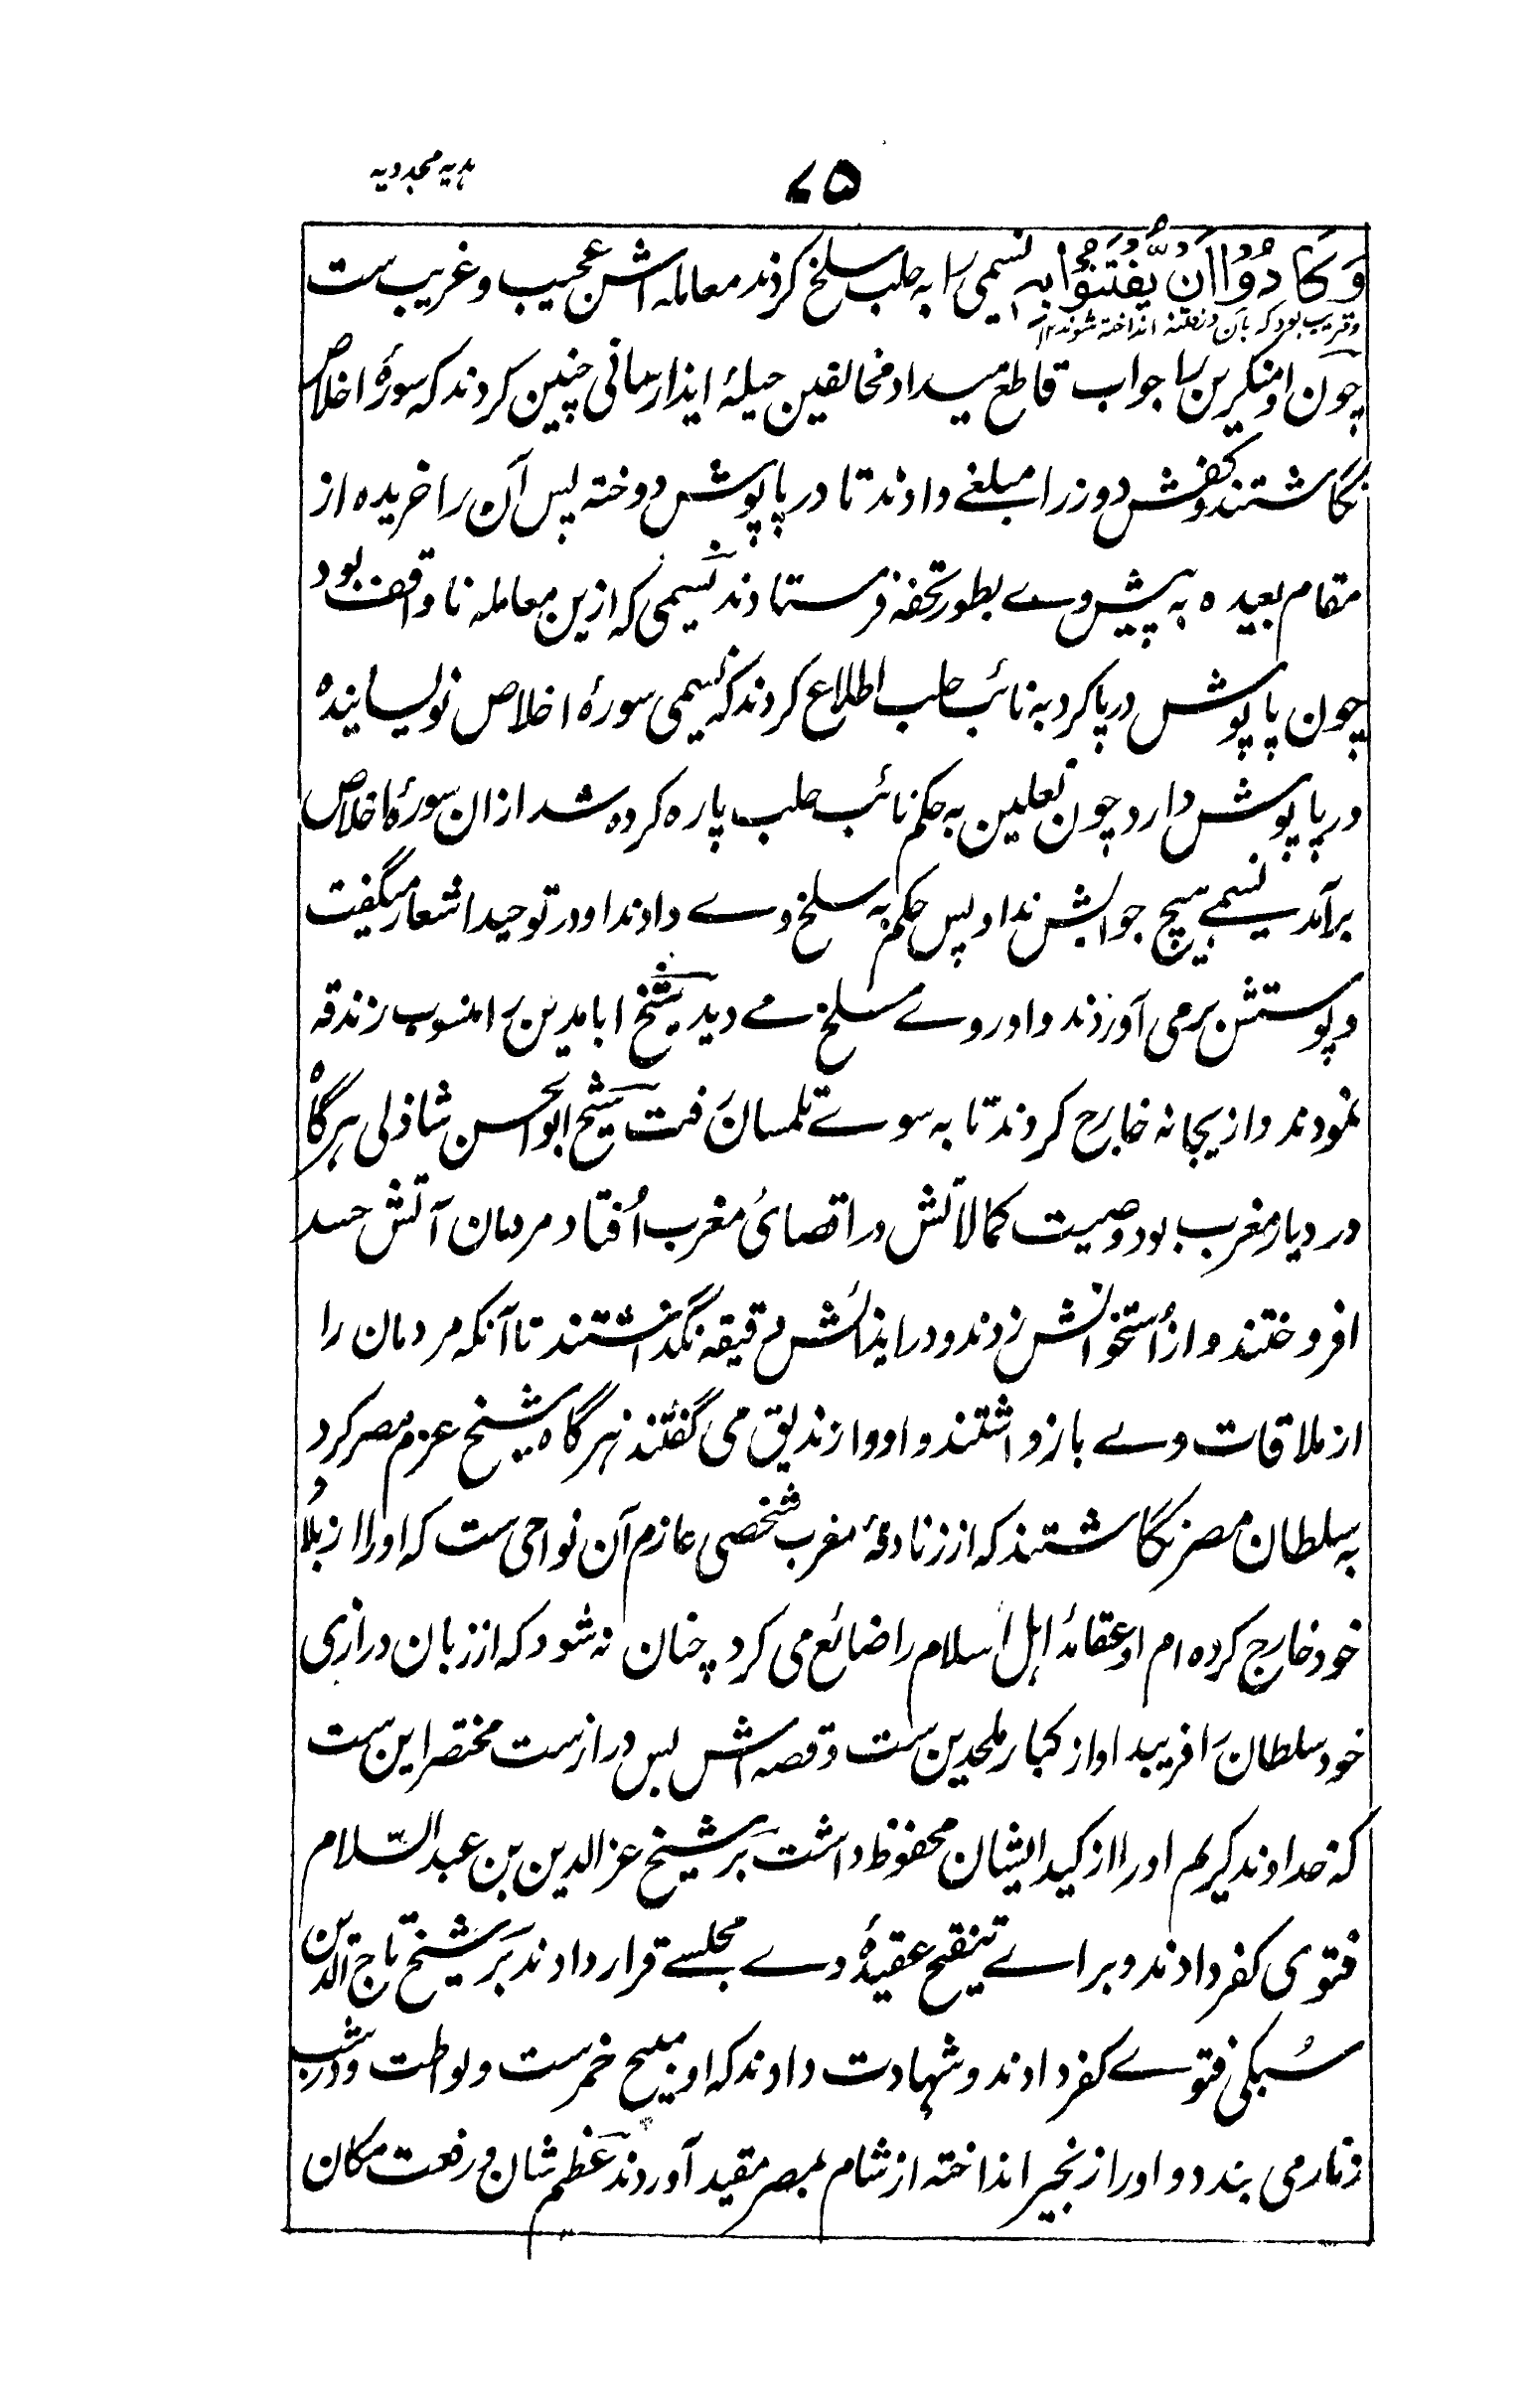 ۷۵
ہدیہ مجددیہ
وَكَادُوْا اَنْ يُّفْتَنُوْا بِهٖ نسیمی را بہ حلب سلخ کردند معاملہ اش عجیب و غریب ست
و قریب بود کہ بآن در فتنہ انداختہ شوند ۱۲
چون او منکرین را جواب قاطع میداد مخالفین حیلۂ ایذا رسانی چنین کردند کہ سورۂ اخلاص
نگاشتند و کفش دوز را مبلغے دادند تا در پاپوش دوختہ پس آن را خریدہ از
مقام بعیدہ بہ پیش وے بطور تحفہ فرستادند نسیمی کہ ازین معاملہ ناواقف بود
چون پاپوش در پا کرد بہ نائب حلب اطلاع کردند کہ نسیمی سورۂ اخلاص نویسانیدہ
در پاپوش دارد چون نعلین بہ حکم نائب حلب پارہ کردہ شد ازان سورۂ اخلاص
برآمد نسیمے ہیچ جوابش نداد پس حکم بہ سلخ وے دادند او در توحید اشعار میگفت
و پوستش برمی آوردند و او روے مسلخ مے دید شیخ ابا مدین را منسوب زندقہ
نمودند و از بجانہ خارج کردند تا بہ سوے تلمسان رفت شیخ ابوالحسن شاذلی ہرگاہ
در دیار مغرب بود و صیت کمالاتش در اقصائ مغرب اُفتاد مردمان آتش حسد
افروختند و از اُستخوانش زدند و در ایذائش دقیقہ نگذاشتند تا آنکہ مردمان را
از ملاقات وے باز داشتند و او را زندیق می گفتند ہرگاہ شیخ عزم مصر کرد
بہ سلطان مصر نگاشتند کہ از زنادقۂ مغرب شخصی عازم آن نواحی ست کہ او را از بلاد
خود خارج کردہ ام او عقائد اہل اسلام را ضائع می کرد چنان نہ شود کہ از زبان درازی
خود سلطان را فریبد او از کبار ملحدین ست و قصہ اش بس دراز ست مختصر این ست
کہ خداوند کریم او را از کید ایشان محفوظ داشت بر شیخ عز الدین بن عبد السّلام
فتوی کفر دادند و براے تنقیح عقیدۂ وے مجلسے قرار دادند بر شیخ تاج الدین
سُبکی فتوے کفر دادند و شہادت دادند کہ او مبیح خمر ست و لواطت و در شب
زنار می بندد و او را زنجیر انداختہ از شام بمصر مقید آوردند عظم شان و رفعت مکان